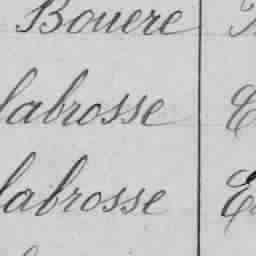 Bouere
labrosse
labrosse